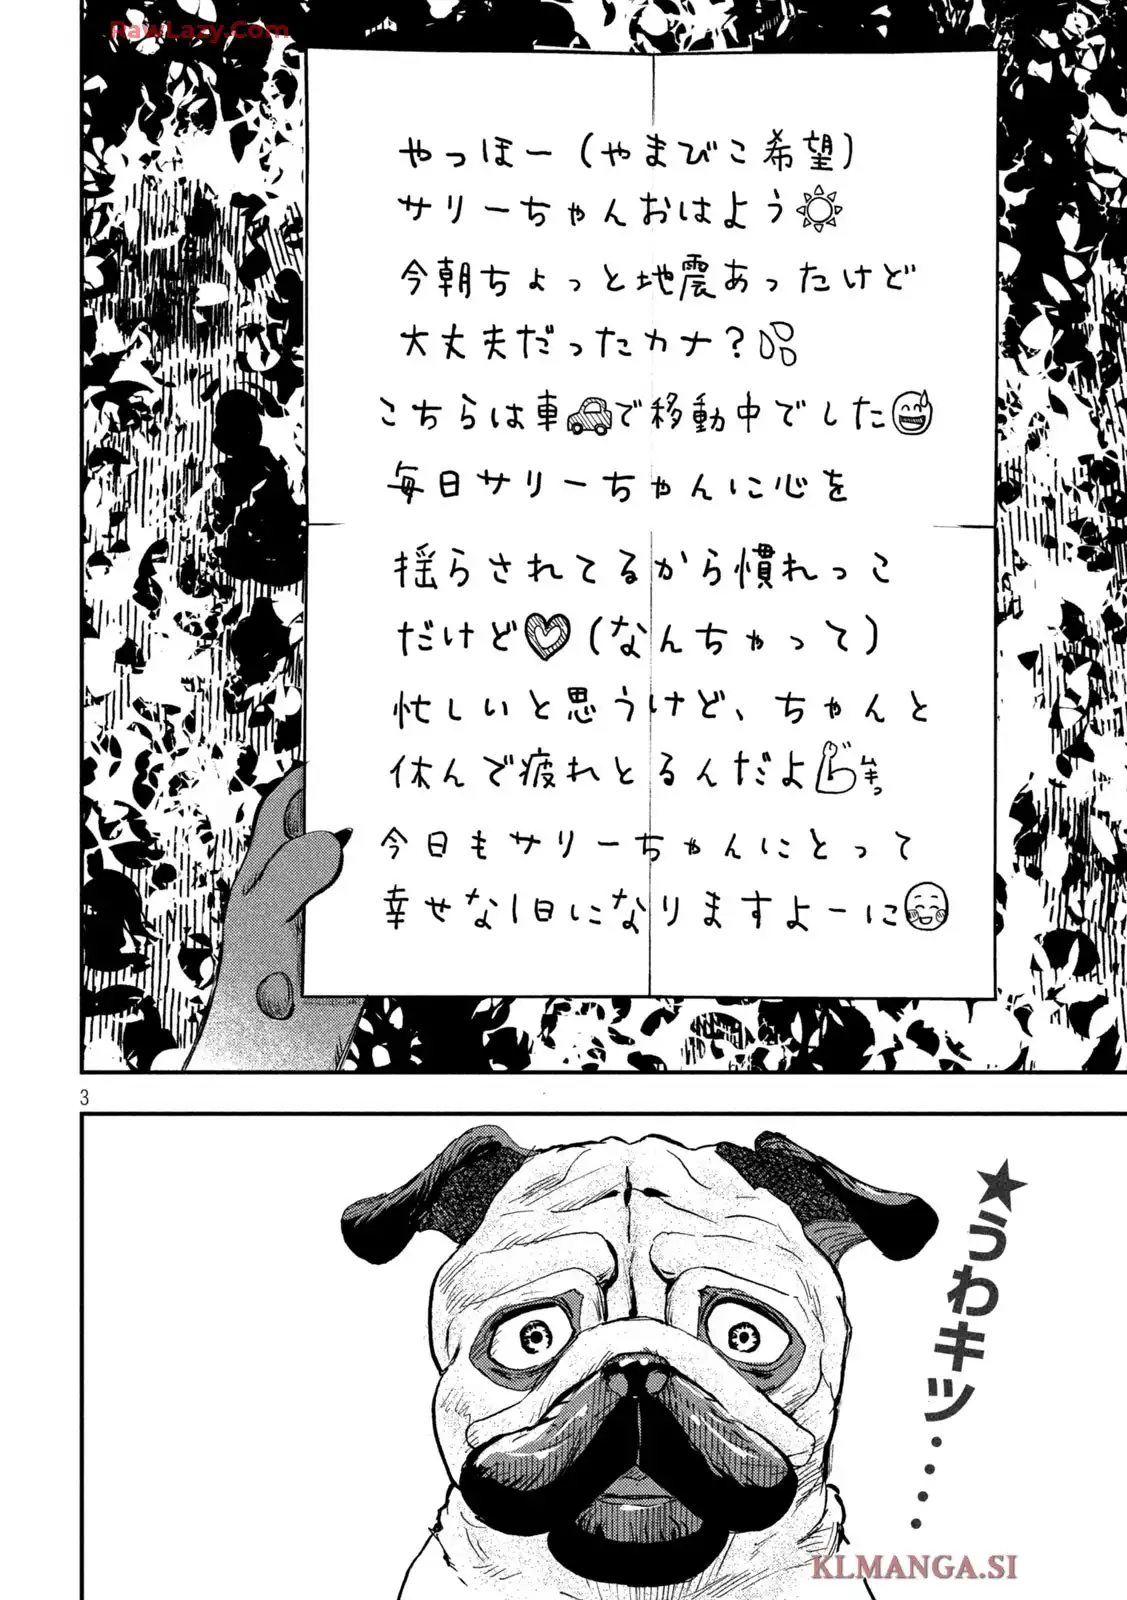 RawLazy.Com
やっほー(やまびこ希望)
サリーちゃんおはよう
今朝ちょっと地震あったけど
大丈夫だったカナ?
こちらは車で移動中でした
毎日サリーちゃんに心を
揺らされてるから慣れっこ
だけど(なんちゃって)
忙しいと思うけど、ちゃんと
休んで疲れとるんだよ
ムキッ
今日もサリーちゃんにとって
幸せな1日になりますよーに
3
★うわキツ・・・・
KLMANGA.SI